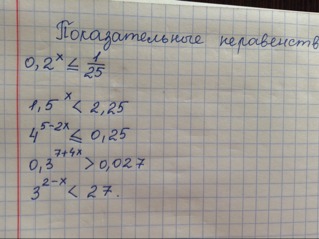 Показательные неравенств
0,2^x ≤ 1/25
1,5^x < 2,25
4^(5-2x) ≤ 0,25
0,3^(7+4x) > 0,027
3^(2-x) < 27.